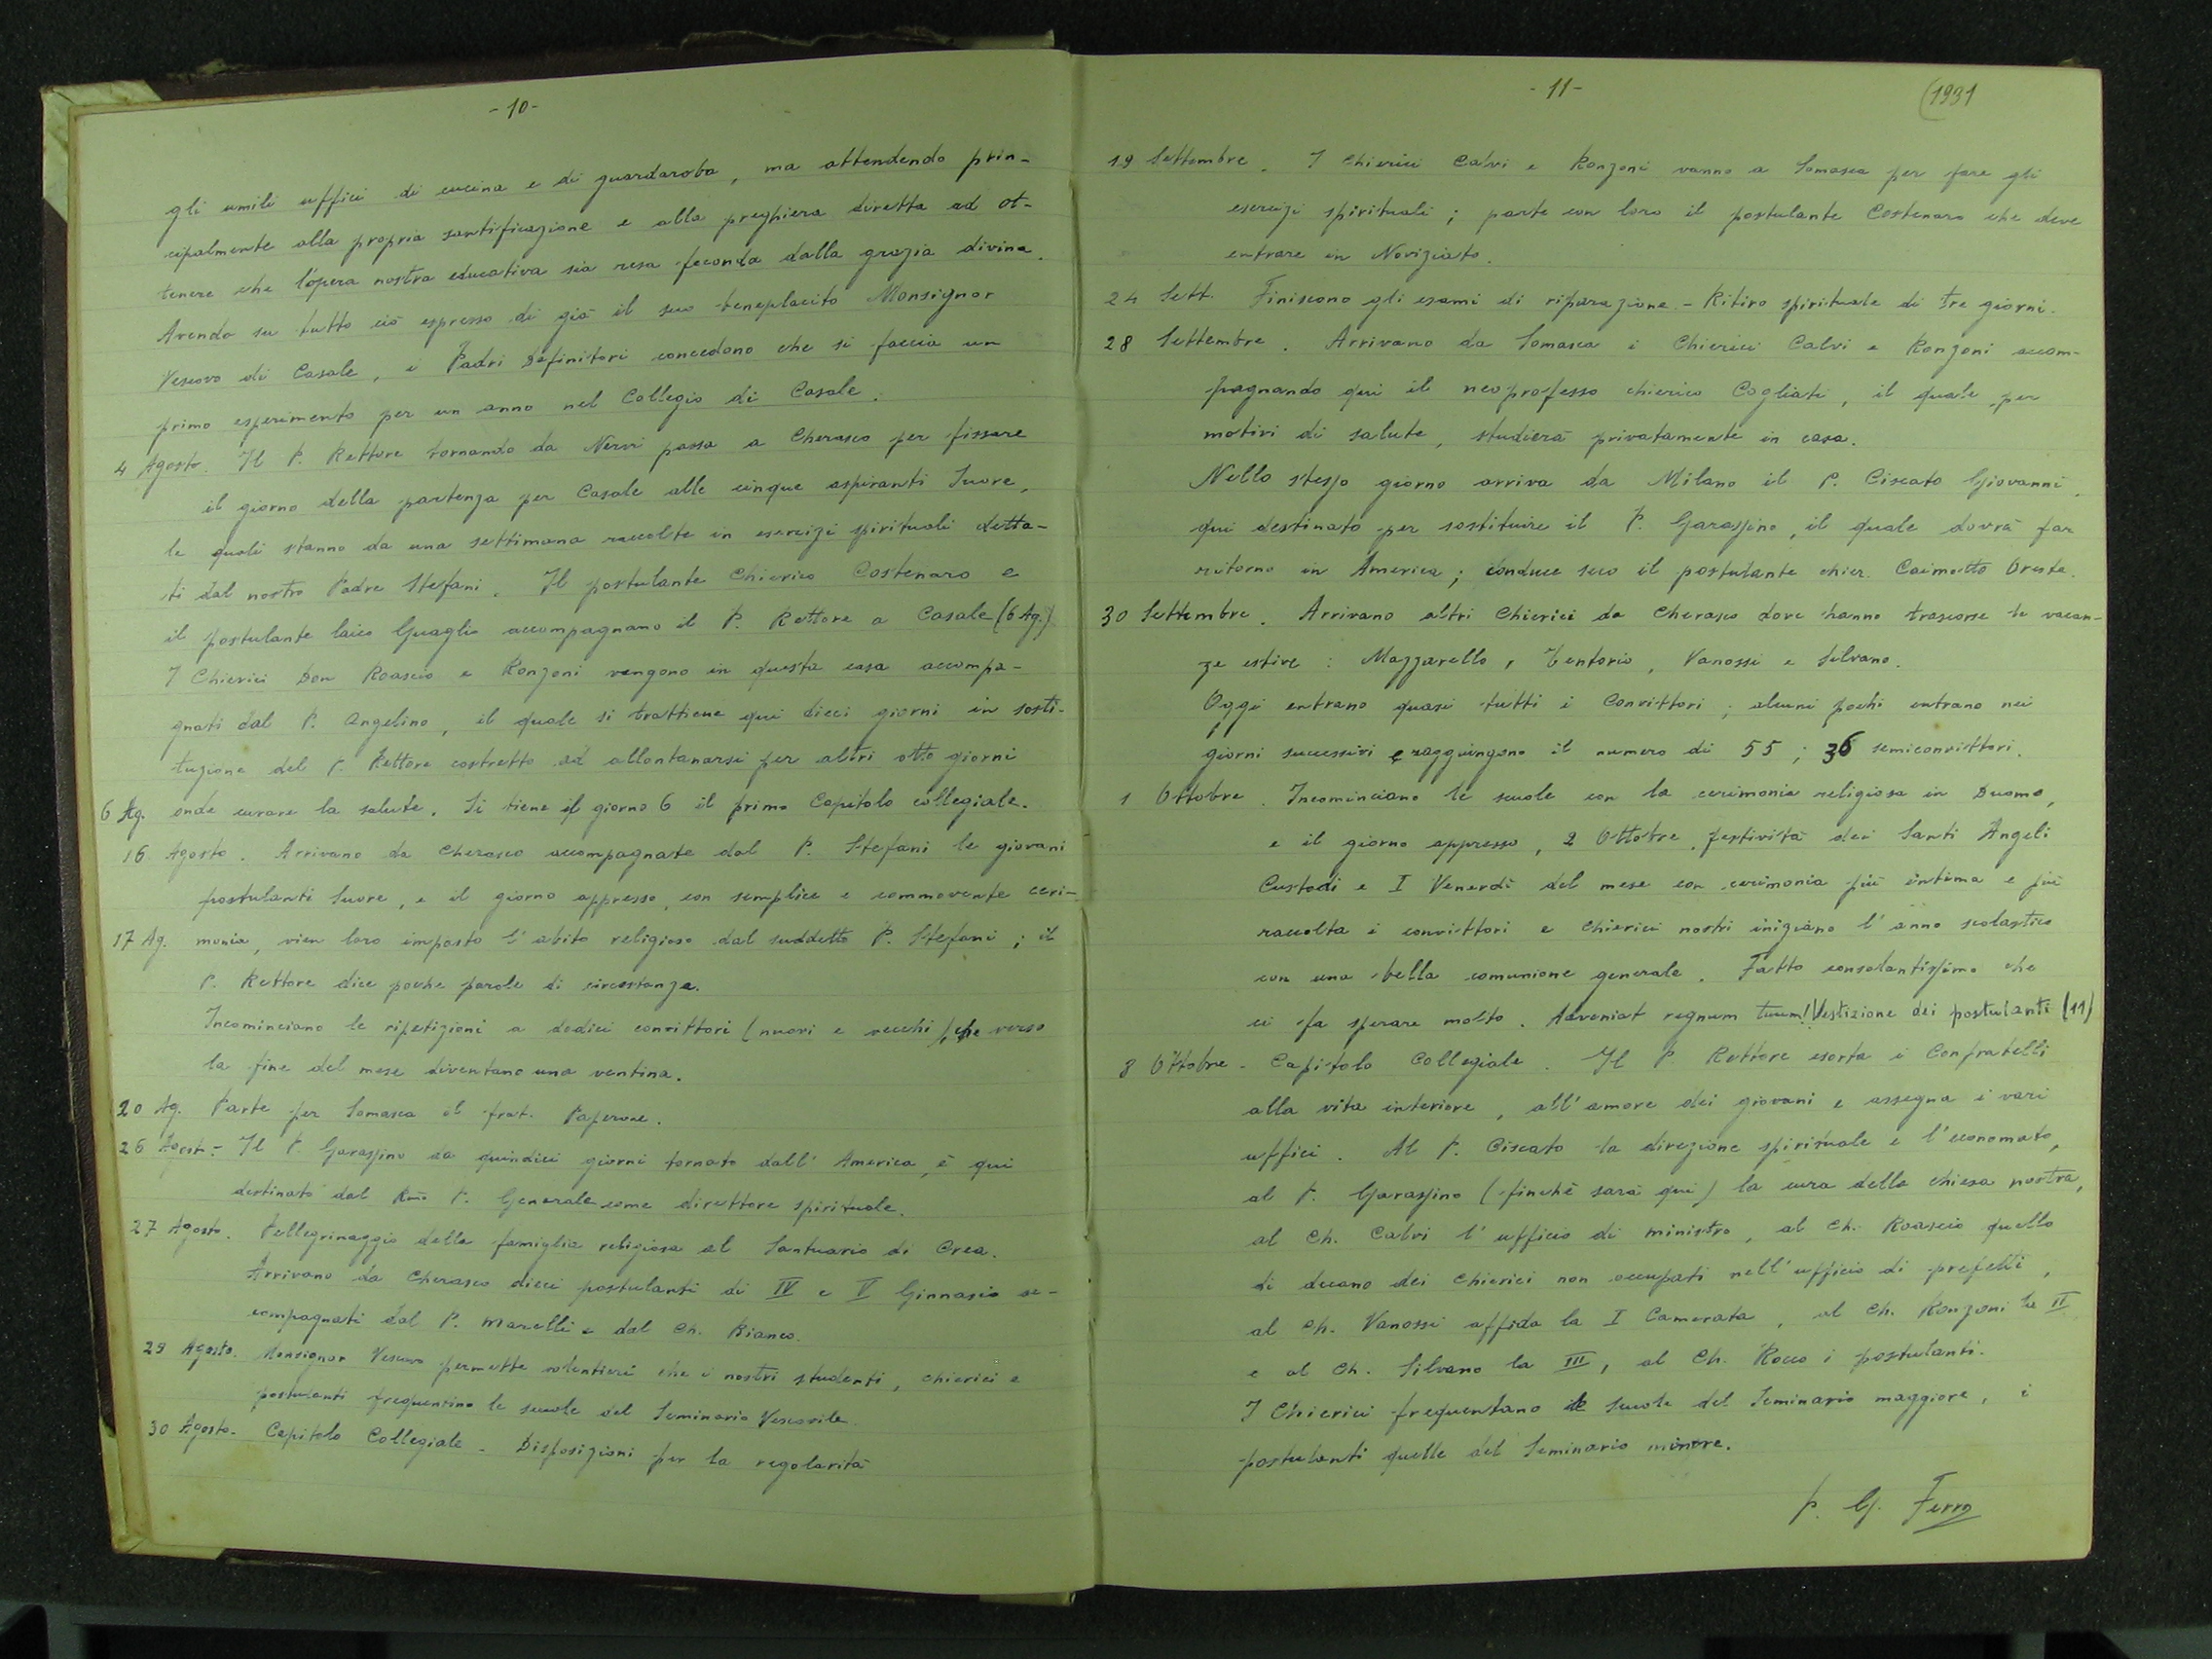 - 10 -
gli umili uffici di cucina e di guardaroba, ma attendendo prin-
cipalmente alla propria santificazione e alla preghiera diretta ad ot-
tenere che l'opera nostra educativa sia resa feconda dalla grazia divina.
Avendo su tutto ciò espresso di già il suo beneplacito Monsignor
Vescovo di Casale, i Padri Definitori concedono che si faccia un
primo esperimento per un anno nel Collegio di Casale.
4 Agosto. Il P. Rettore tornando da Nervi passa a Cherasco per fissare
il giorno della partenza per Casale alle cinque aspiranti Suore,
le quali stanno da una settimana raccolte in esercizi spirituali detta-
ti dal nostro Padre Stefani. Il postulante Chierico Costenaro e
il postulante laico Guaglio accompagnano il P. Rettore a Casale (6 Ag.)
I Chierici Don Roascio e Ronzoni vengono in questa casa accompa-
gnati dal P. Angelino, il quale si trattiene qui dieci giorni in sosti-
tuzione del P. Rettore costretto ad allontanarsi per altri otto giorni
6 Ag. onde curare la salute. Si tiene il giorno 6 il primo Capitolo collegiale.
16 Agosto. Arrivano da Cherasco accompagnate dal P. Stefani le giovani
postulanti Suore, e il giorno appresso, con semplice e commovente ceri-
17 Ag. monia, vien loro imposto l'abito religioso dal suddetto P. Stefani; il
P. Rettore dice poche parole di circostanza.
Incominciano le ripetizioni a dodici convittori (nuovi e vecchi) che verso
la fine del mese diventano una ventina.
20 Ag. Parte per Somasca il frat. Paperone.
26 Agost. - Il P. Garassino da quindici giorni tornato dall'America, è qui
destinato dal Rmo P. Generale come direttore spirituale.
27 Agosto. Pellegrinaggio della famiglia religiosa al Santuario di Crea.
Arrivano da Cherasco dieci postulanti di IV e V Ginnasio ac-
compagnati dal P. Marelli e dal Ch. Bianco.
29 Agosto. Monsignor Vescovo permette volentieri che i nostri studenti, chierici e
postulanti frequentino le scuole del Seminario Vescovile.
30 Agosto. Capitolo Collegiale - Disposizioni per la regolarità
- 11 -
(1931
19 Settembre. I Chierici Calvi e Ronzoni vanno a Somasca per fare gli
esercizi spirituali; parte con loro il postulante Costenaro che deve
entrare in Noviziato.
24 Sett. Finiscono gli esami di riparazione. - Ritiro spirituale di tre giorni.
28 Settembre. Arrivano da Somasca i Chierici Calvi e Ronzoni accom-
pagnando qui il neoprofesso chierico Cogliati, il quale, per
motivi di salute, studierà privatamente in casa.
Nello stesso giorno arriva da Milano il P. Ciscato Giovanni,
qui destinato per sostituire il P. Garassino, il quale dovrà far
ritorno in America; conduce seco il postulante chier. Caimotto Oreste.
30 Settembre. Arrivano altri Chierici da Cherasco dove hanno trascorse le vacan-
ze estive: Mazzarello, Tentorio, Vanossi e Silvano.
Oggi entrano quasi tutti i Convittori; alcuni pochi entrano nei
giorni successivi e raggiungono il numero di 55; 36 semiconvittori.
1 Ottobre. Incominciano le scuole con la cerimonia religiosa in Duomo,
e il giorno appresso, 2 Ottobre, festività dei Santi Angeli
Custodi e I Venerdì del mese con cerimonia più intima e più
raccolta i convittori e chierici nostri iniziano l'anno scolastico
con una bella comunione generale. Fatto consolantissimo che
ci fa sperare molto. Adveniat regnum tuum! Vestizione dei postulanti (11)
8 Ottobre - Capitolo Collegiale. Il P. Rettore esorta i Confratelli
alla vita interiore, all'amore dei giovani e assegna i vari
uffici. Al P. Ciscato la direzione spirituale e l'economato,
al P. Garassino (finchè sarà qui) la cura della chiesa nostra,
al Ch. Calvi l'ufficio di ministro, al Ch. Roascio quello
di decano dei chierici non occupati nell'ufficio di prefetti,
al Ch. Vanossi affida la I Camerata, al Ch. Ronzoni la II
e al Ch. Silvano la III, al Ch. Rocco i postulanti.
I Chierici frequentano le scuole del Seminario maggiore, i
postulanti quelle del Seminario minore.
P. G. Ferro